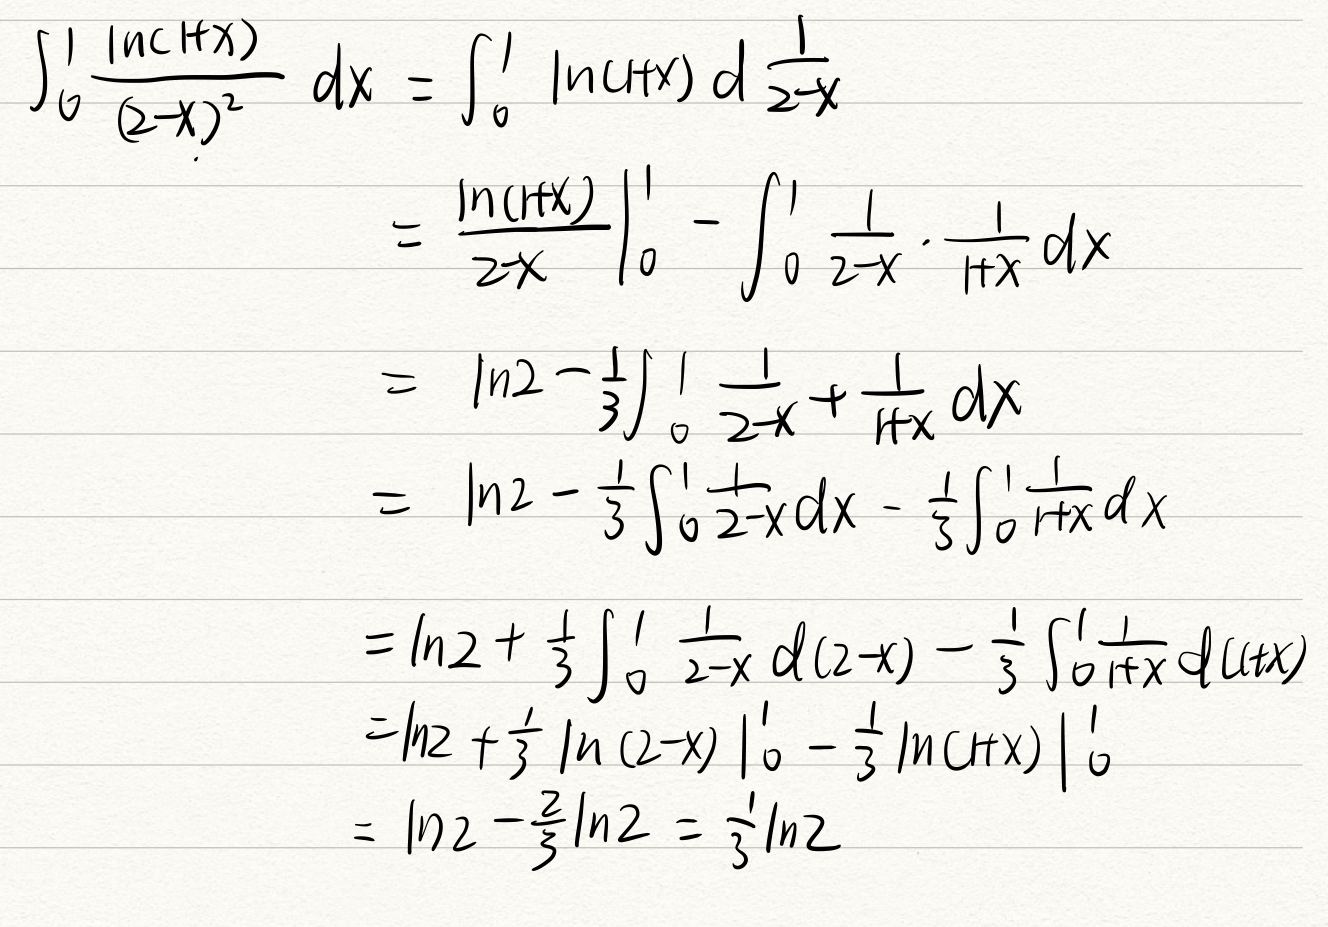 ∫₀¹ ln(1+x)/(2-x)² dx = ∫₀¹ ln(1+x) d 1/(2-x)
= ln(1+x)/(2-x) |₀¹ - ∫₀¹ 1/(2-x) · 1/(1+x) dx
= ln2 - 1/3 ∫₀¹ 1/(2-x) + 1/(1+x) dx
= ln2 - 1/3 ∫₀¹ 1/(2-x) dx - 1/3 ∫₀¹ 1/(1+x) dx
= ln2 + 1/3 ∫₀¹ 1/(2-x) d(2-x) - 1/3 ∫₀¹ 1/(1+x) d(1+x)
= ln2 + 1/3 ln(2-x) |₀¹ - 1/3 ln(1+x) |₀¹
= ln2 - 2/3 ln2 = 1/3 ln2